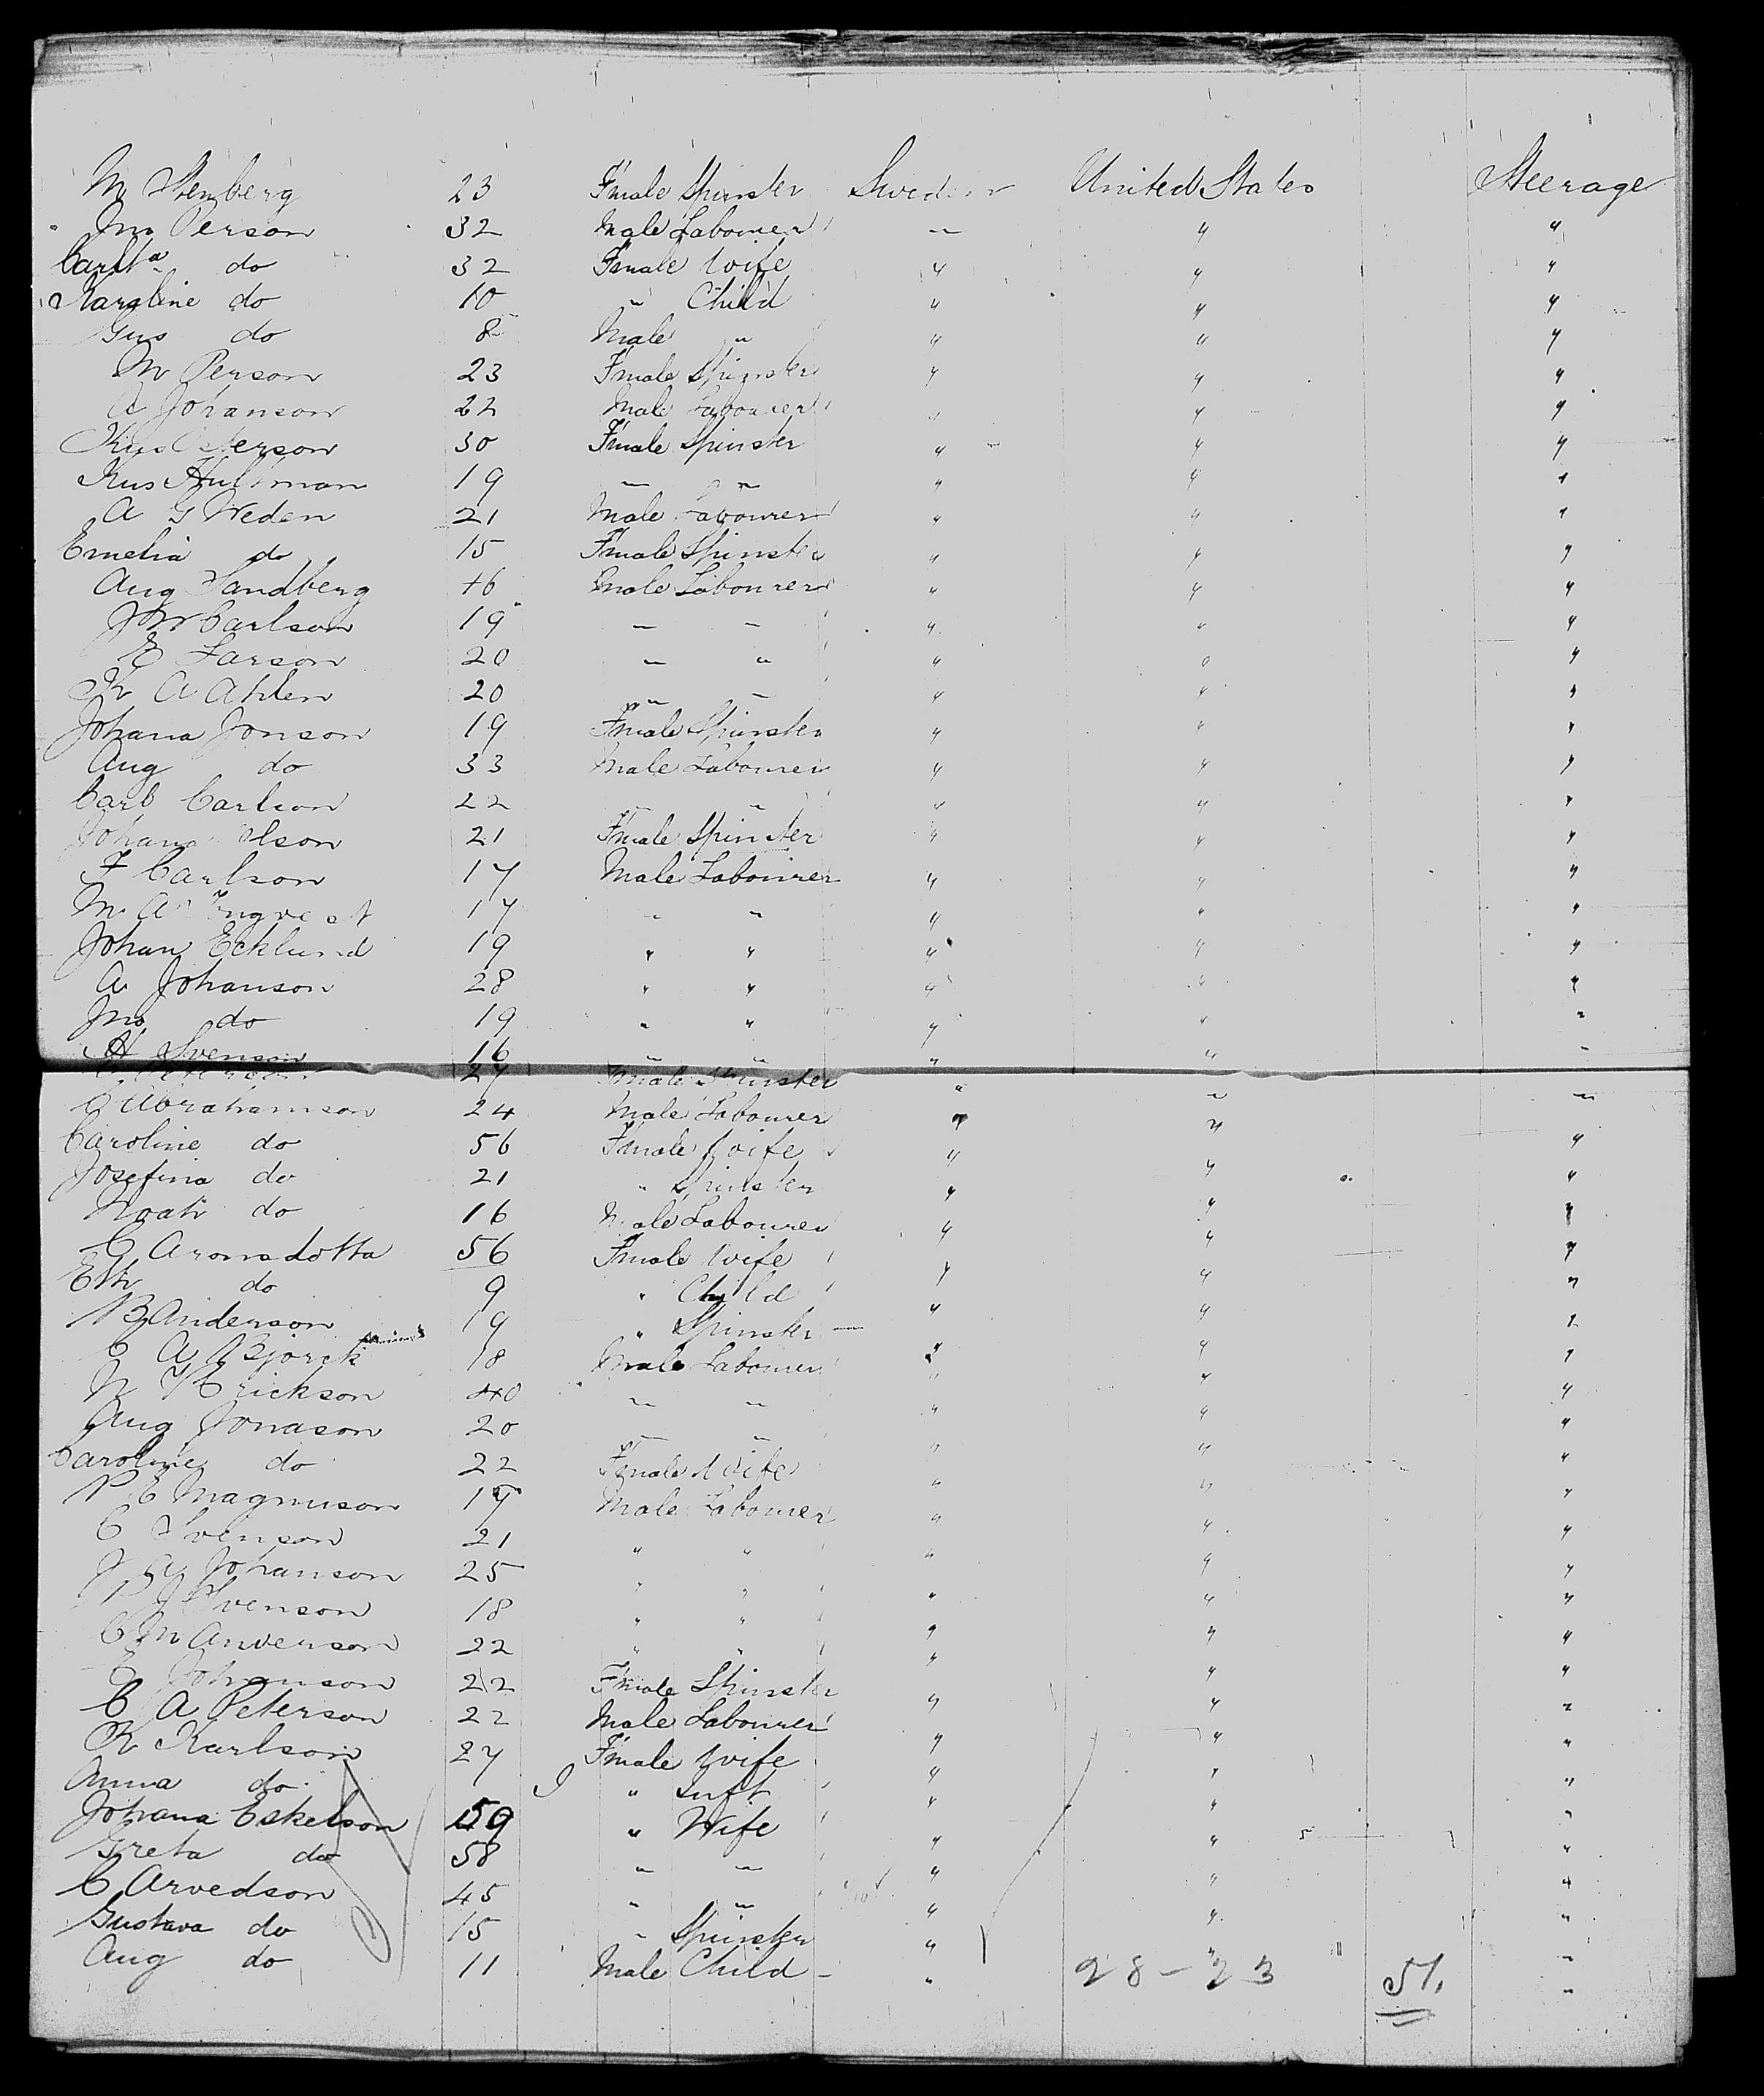 M Stenberg 23 Fmale Spinster Sweden United States Steerage
Jno Person 32 Male Labourer " " "
Carlta do 32 Fmale Wife " " "
Karoline do 10 " Child " " "
Gus do 8 Male " " " "
M Person 23 Fmale Spinster " " "
A Johanson 22 Male Labourer " " "
Kus Peterson 30 Fmale Spinster " " "
Kus Hultman 19 " " " " "
A G Weden 21 Male Labourer " " "
Emelia do 15 Fmale Spinster " " "
Aug Sandberg 46 Male Labourer " " "
J M Carlson 19 " " " " "
E Larson 20 " " " " "
K A Ahlen 20 " " " " "
Johana Jonson 19 Fmale Spinster " " "
Aug do 33 Male Labourer " " "
Carl Carlson 22 " " " " "
Johana Olson 21 Fmale Spinster " " "
F Carlson 17 Male Labourer " " "
M A 17 " " " " "
Johan Ecklund 19 " " " " "
A Johanson 28 " " " " "
Jno do 19 " " " " "
A Svenson 16 " " " " "
27 Fmale Spinster " " "
C Abrahamson 24 Male Labourer " " "
Caroline do 56 Fmale Wife " " "
Josefina do 21 " Spinster " " "
Noah do 16 Male Labourer " " "
C Aronsdotta 56 Fmale Wife " " "
Eth do 9 " Child " " "
B Anderson 19 " Spinster " " "
C A Bjorck 18 Male Labourer " " "
N Erickson 40 " " " " "
Aug Jonason 20 " " " " "
Caroline do 22 Fmale Wife " " "
P E Magnuson 19 Male Labourer " " "
C Svenson 21 " " " " "
J A Johanson 25 " " " " "
P J Svenson 18 " " " " "
C M Anderson 22 " " " " "
E Johanson 22 Fmale Spinster " " "
C A Peterson 22 Male Labourer " " "
K Karlson 27 Fmale Wife " " "
Anna do " Inft " " "
Johana Eskelson 59 " Wife " " "
Greta do 58 " " " " "
C Arvedson 45 " " " " "
Gustava do 15 " Spinster " " "
Aug do 11 Male Child " " "
28 - 23 51.